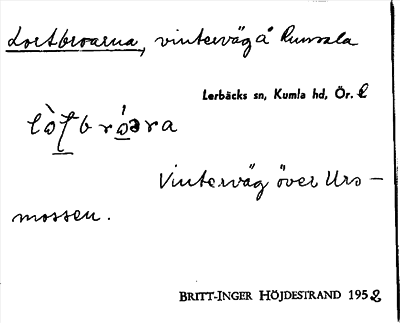 Lortbroarna, vinterväg å Rumsala
Lerbäcks sn, Kumla hd, Ör. l
Vinterväg över Uro-
mossen.
BRITT-INGER HÖJDESTRAND 1952